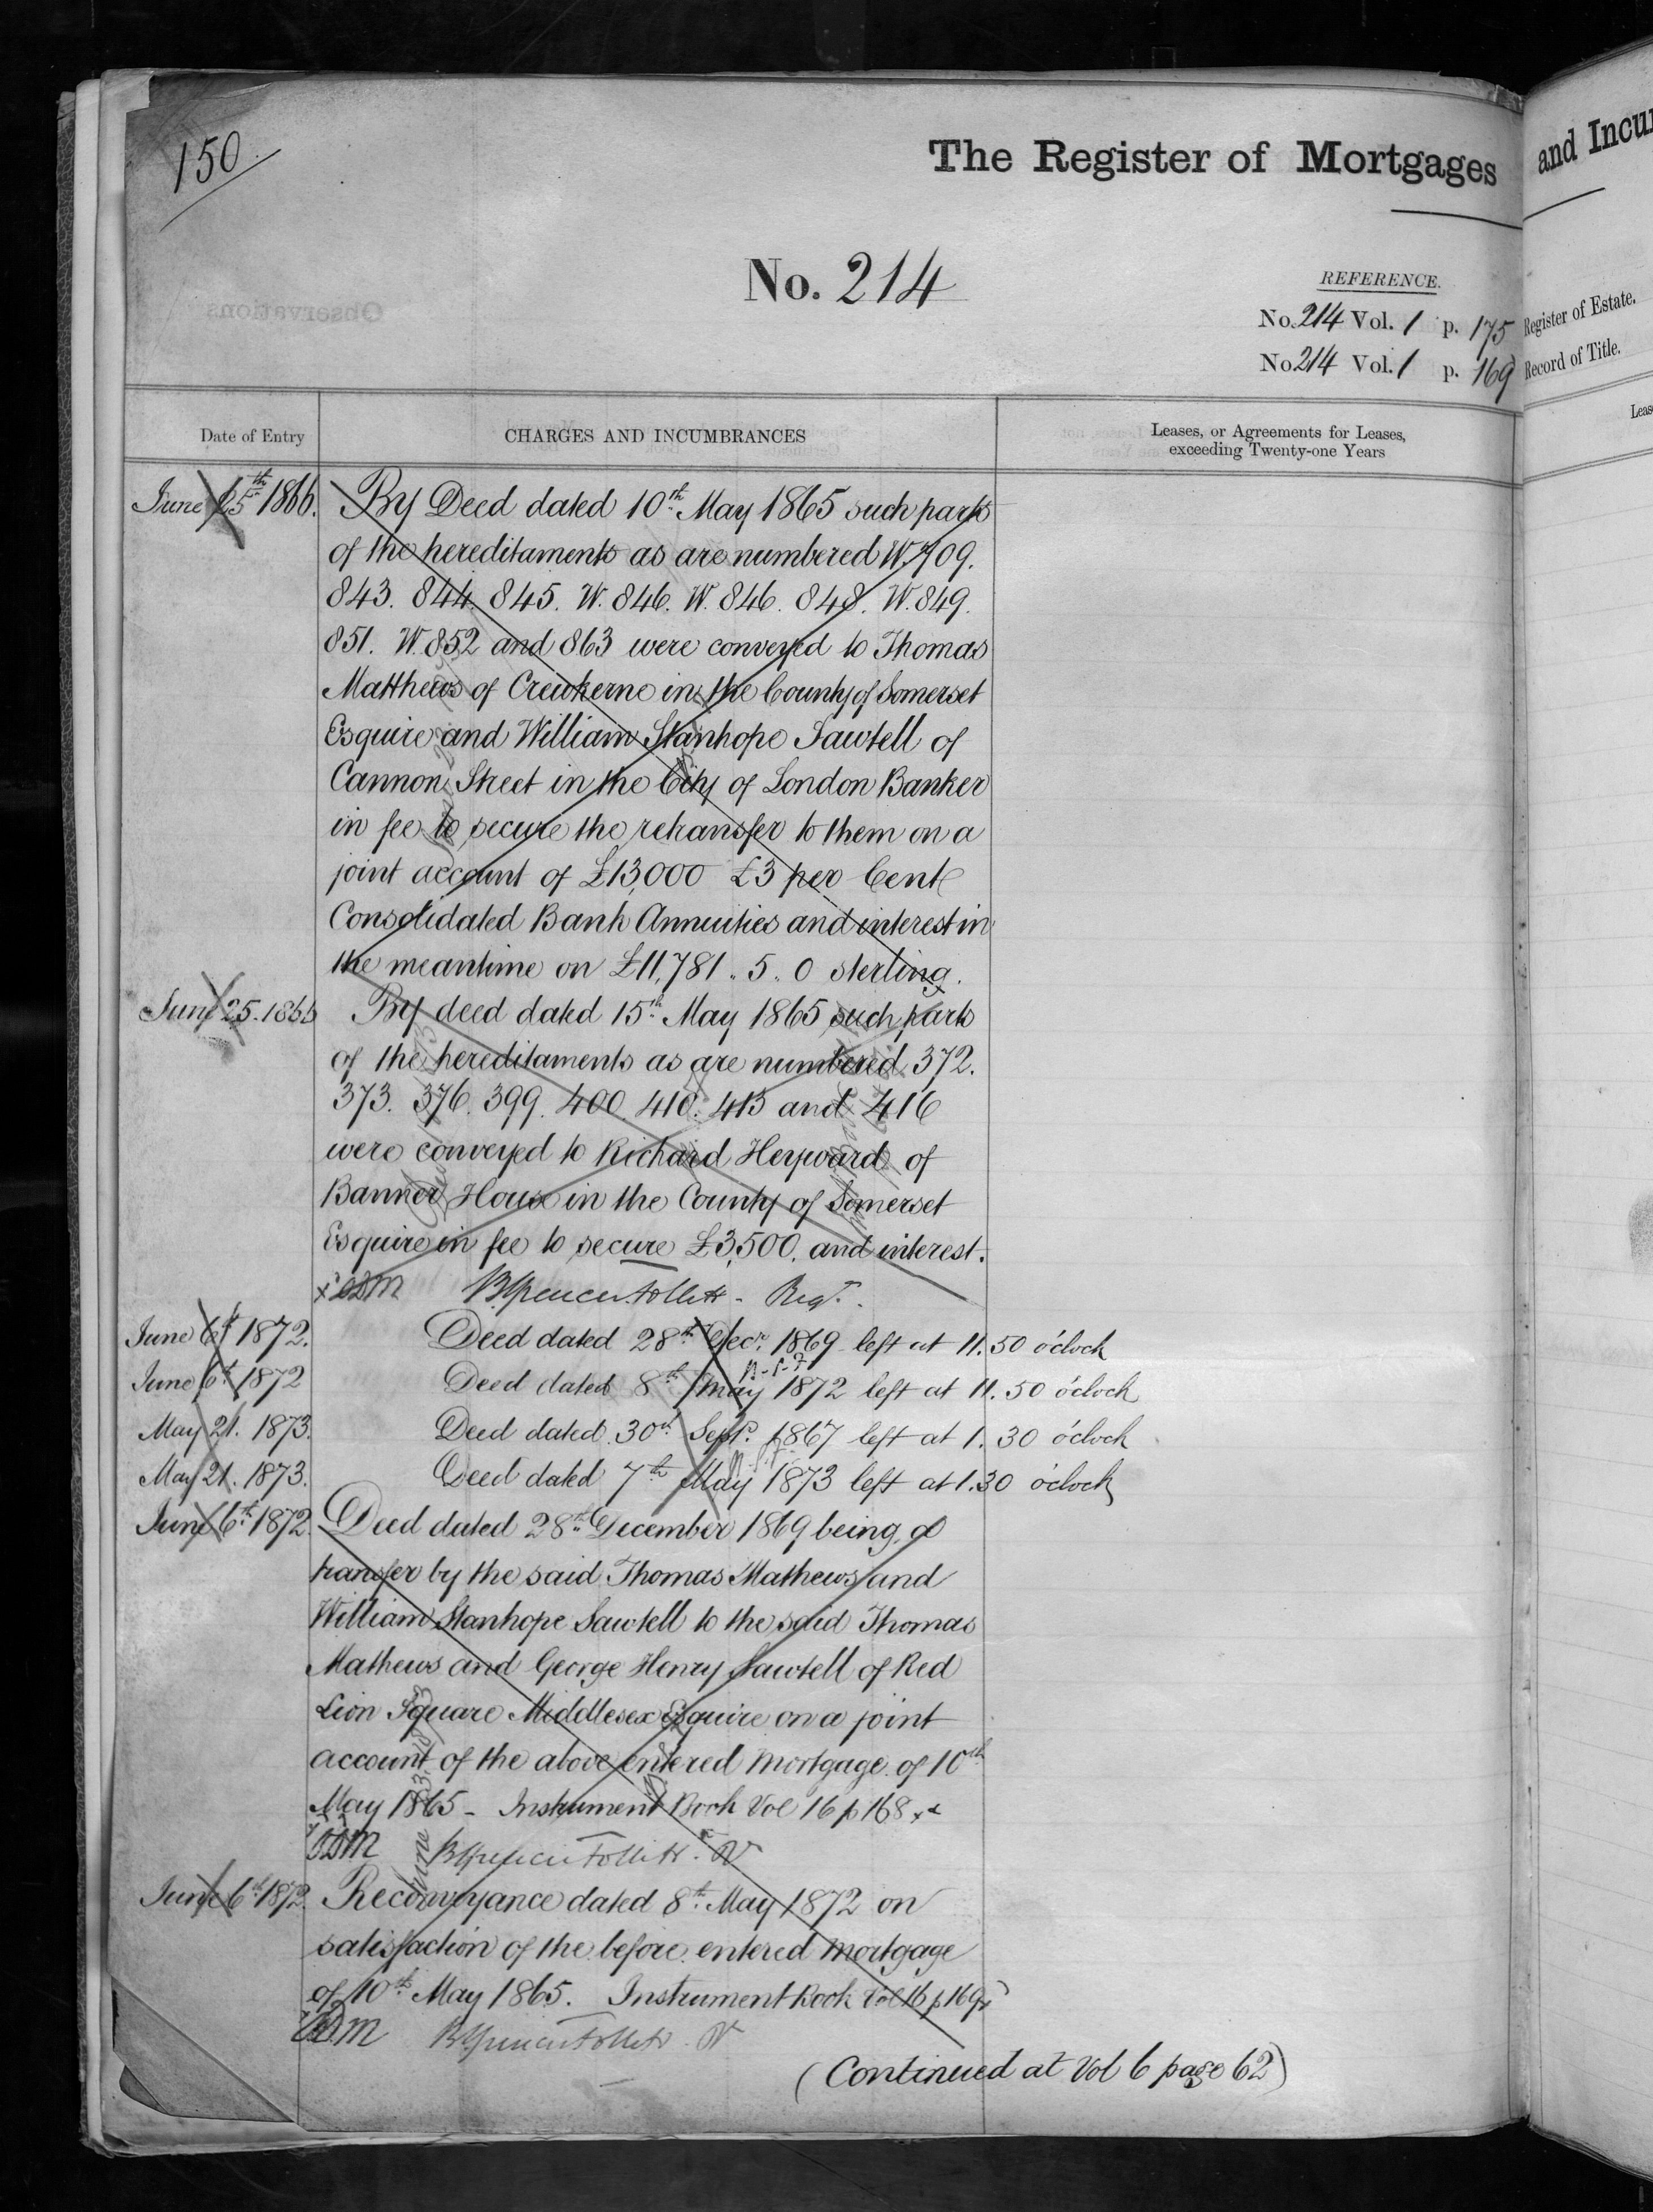 150
The Register of Mortgages
and Incu
No. 214
REFERENCE.
No. 214 Vol. 1 p. 175 Register of Estate.
No 214 Vol. 1 p. 169 Record of Title.
Observations
Date of Entry
CHARGES AND INCUMBRANCES
Leases, or Agreements for Leases,
exceeding Twenty-one Years
Leas
June 25th 1866. By Deed dated 10th May 1865 such parts
of the hereditaments as are numbered W. 709.
843. 844. 845. W. 846. W. 846. 848. W. 849.
851. W. 852 and 863 were conveyed to Thomas
Matthews of Crewkerne in the County of Somerset
Esquire and William Stanhope Sawtell of
Cannon Street in the City of London Banker
in fee to secure the retransfer to them on a
joint account of £13,000 £3 per Cent
Consolidated Bank Annuities and interest in
the meantime on £11,781 .. 5 .. 0 sterling.
June 25. 1866 By deed dated 15th May 1865 such parts
of the hereditaments as are numbered 372.
373. 376. 399. 400. 410. 413 and 416
were conveyed to Richard Heyward of
Banner House in the County of Somerset
Esquire in fee to secure £3,500. and interest.
BSpencerFollett - Regr.
June 6th 1872. Deed dated 28th Decr. 1869 left at 11.50 o'clock
June 6th 1872 Deed dated 8th May 1872 left at 11.50 o'clock
May 21. 1873. Deed dated 30th Sept. 1867 left at 1.30 o'clock
May 21. 1873. Deed dated 7th May 1873 left at 1.30 o'clock
June 6th 1872. Deed dated 28th December 1869 being a
transfer by the said Thomas Mathews and
William Stanhope Sawtell to the said Thomas
Mathews and George Henry Sawtell of Red
Lion Square Middlesex Esquire on a joint
account of the above entered mortgage of 10th
May 1865 - Instrument Book Vol 16 p 168
BSpencerFollett. R
June 6th 1872. Reconveyance dated 8th May 1872 on
satisfaction of the before entered mortgage
of 10th May 1865. Instrument Book Vol 16 p 169
BSpencerFollett. R
(Continued at Vol 6 page 62)